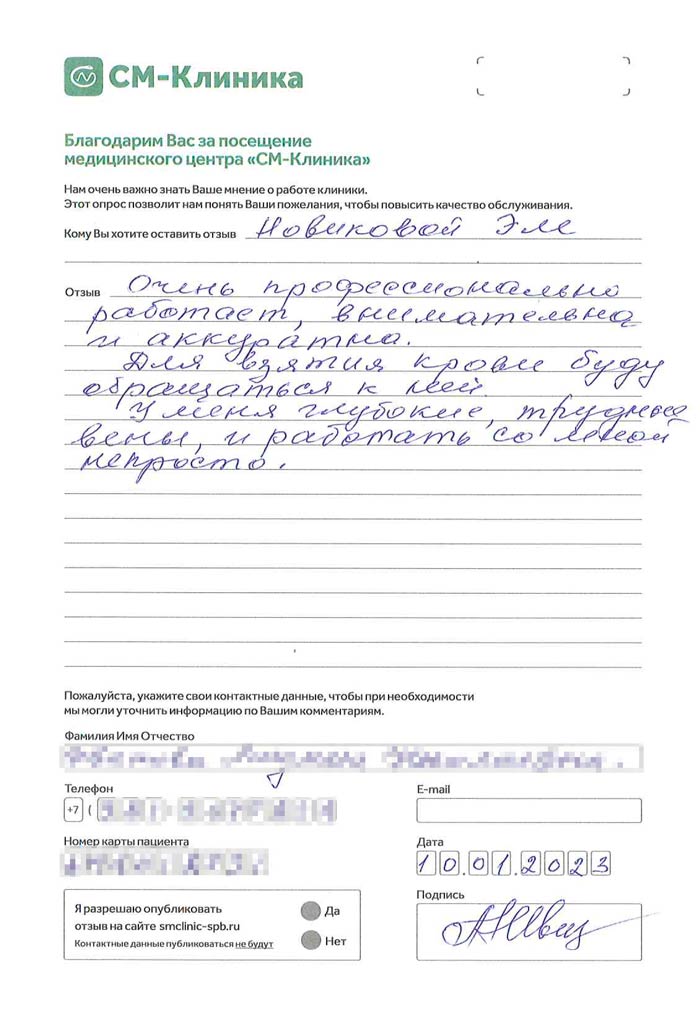 СМ-Клиника
Благодарим Вас за посещение
медицинского центра «СМ-Клиника»
Нам очень важно знать Ваше мнение о работе клиники.
Этот опрос позволит нам понять Ваши пожелания, чтобы повысить качество обслуживания.
Кому Вы хотите оставить отзыв Новиковой Эле
Отзыв Очень профессионально
работает, внимательна
и аккуратна.
Для взятия крови буду
обращаться к ней.
У меня глубокие, трудные
вены, и работать со мной
непросто.
Пожалуйста, укажите свои контактные данные, чтобы при необходимости
мы могли уточнить информацию по Вашим комментариям.
Фамилия Имя Отчество
Телефон
E-mail
+7 (
Номер карты пациента
Дата
10.01.2023
Подпись
Я разрешаю опубликовать
отзыв на сайте smclinic-spb.ru
Контактные данные публиковаться не будут
Да
Нет